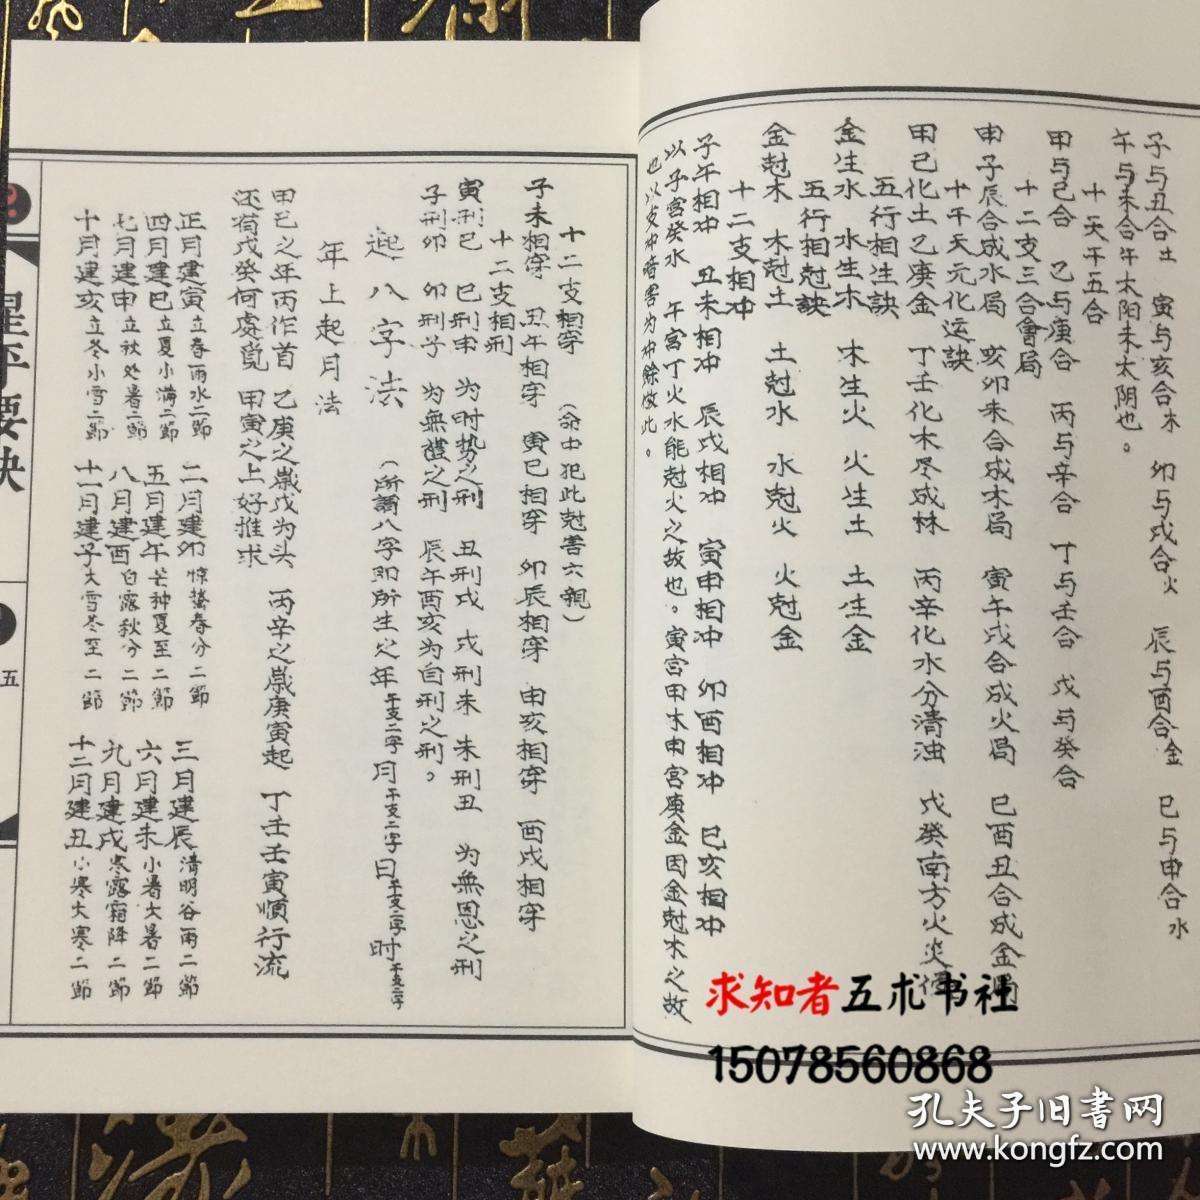 子与丑合土　寅与亥合木　卯与戌合火　辰与酉合金　巳与申合水
午与未合午太阳未太阴也。
十天干五合
甲与己合　乙与庚合　丙与辛合　丁与壬合　戊与癸合
十二支三合會局
申子辰合成水局　亥卯未合成木局　寅午戌合成火局　巳酉丑合成金局
十干天元化运訣
甲己化土乙庚金　丁壬化木尽成林　丙辛化水分清浊　戊癸南方火炎
五行相生訣
金生水　水生木　木生火　火生土　土生金
五行相尅訣
金尅木　木尅土　土尅水　水尅火　火尅金
十二支相冲
子午相冲　丑未相冲　辰戌相冲　寅申相冲　卯酉相冲　巳亥相冲
以子宫癸水　午宫丁火水能尅火之故也。寅宫甲木申宫庚金因金尅木之故
也以支冲暗害为冲餘倣此。
十二支相穿　（命中犯此尅害六親）
子未相穿　丑午相穿　寅巳相穿　卯辰相穿　申亥相穿　酉戌相穿
十二支相刑
寅刑巳　巳刑申　为时势之刑　丑刑戌　戌刑未　未刑丑　为無恩之刑
子刑卯　卯刑子　为無禮之刑　辰午酉亥为自刑之刑。
起八字法　（所謂八字即所生之年干支二字月干支二字日干支二字时干支二字
年上起月法
甲己之年丙作首　乙庚之歳戊为头　丙辛之歳庚寅起　丁壬壬寅順行流
还有戊癸何處覓　甲寅之上好推求
正月建寅立春雨水二節　二月建卯惊蟄春分二節　三月建辰清明谷雨二節
四月建巳立夏小满二節　五月建午芒种夏至二節　六月建未小暑大暑二節
七月建申立秋处暑二節　八月建酉白露秋分二節　九月建戌寒露霜降二節
十月建亥立冬小雪二節　十一月建子大雪冬至二節　十二月建丑小寒大寒二節
星平要訣
五
求知者五术书社
15078560868
孔夫子旧書网
www.kongfz.com